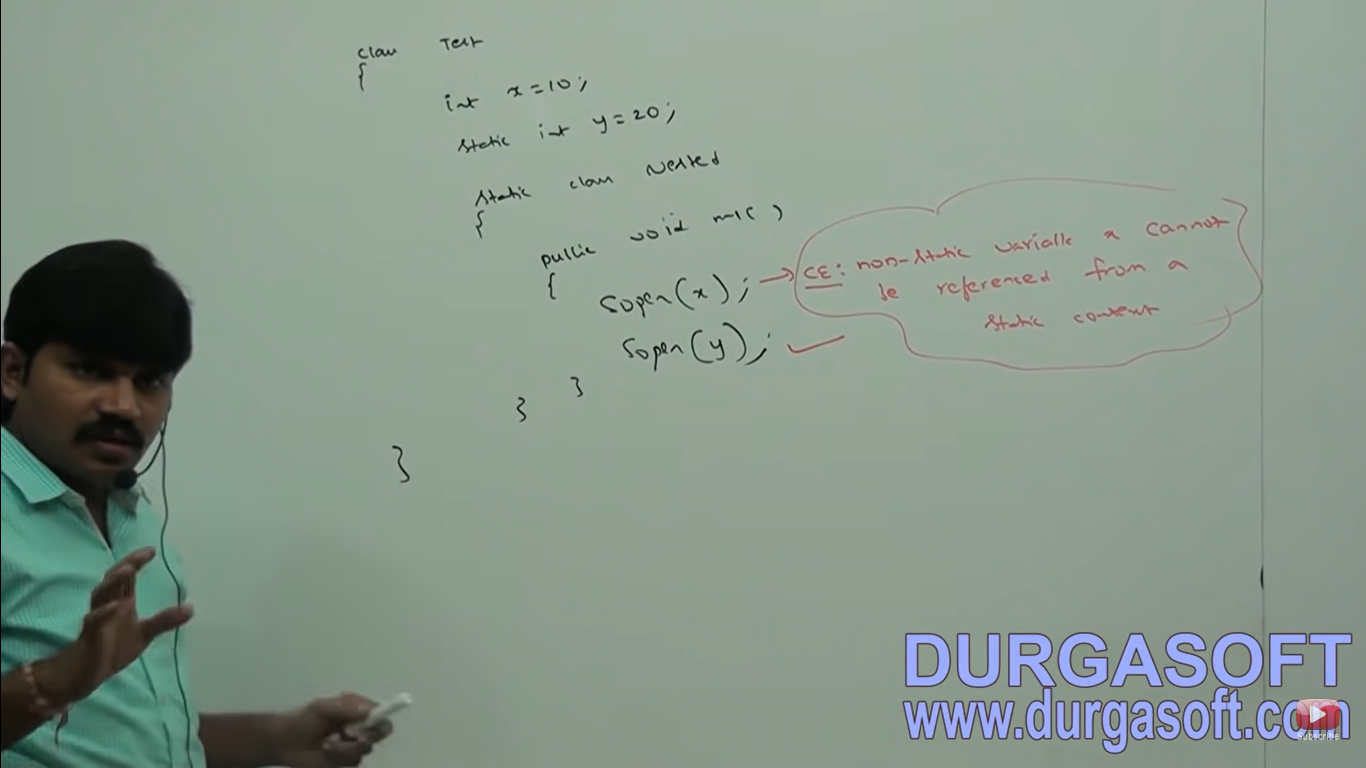 class Test
{
int x=10;
static int y=20;
static class Nested
{
public void m1( )
{
sopln(x); → CE: non-static variable x cannot
be referenced from a
static context
sopln(y); ✓
}
}
}
DURGASOFT
www.durgasoft.com
Subscribe